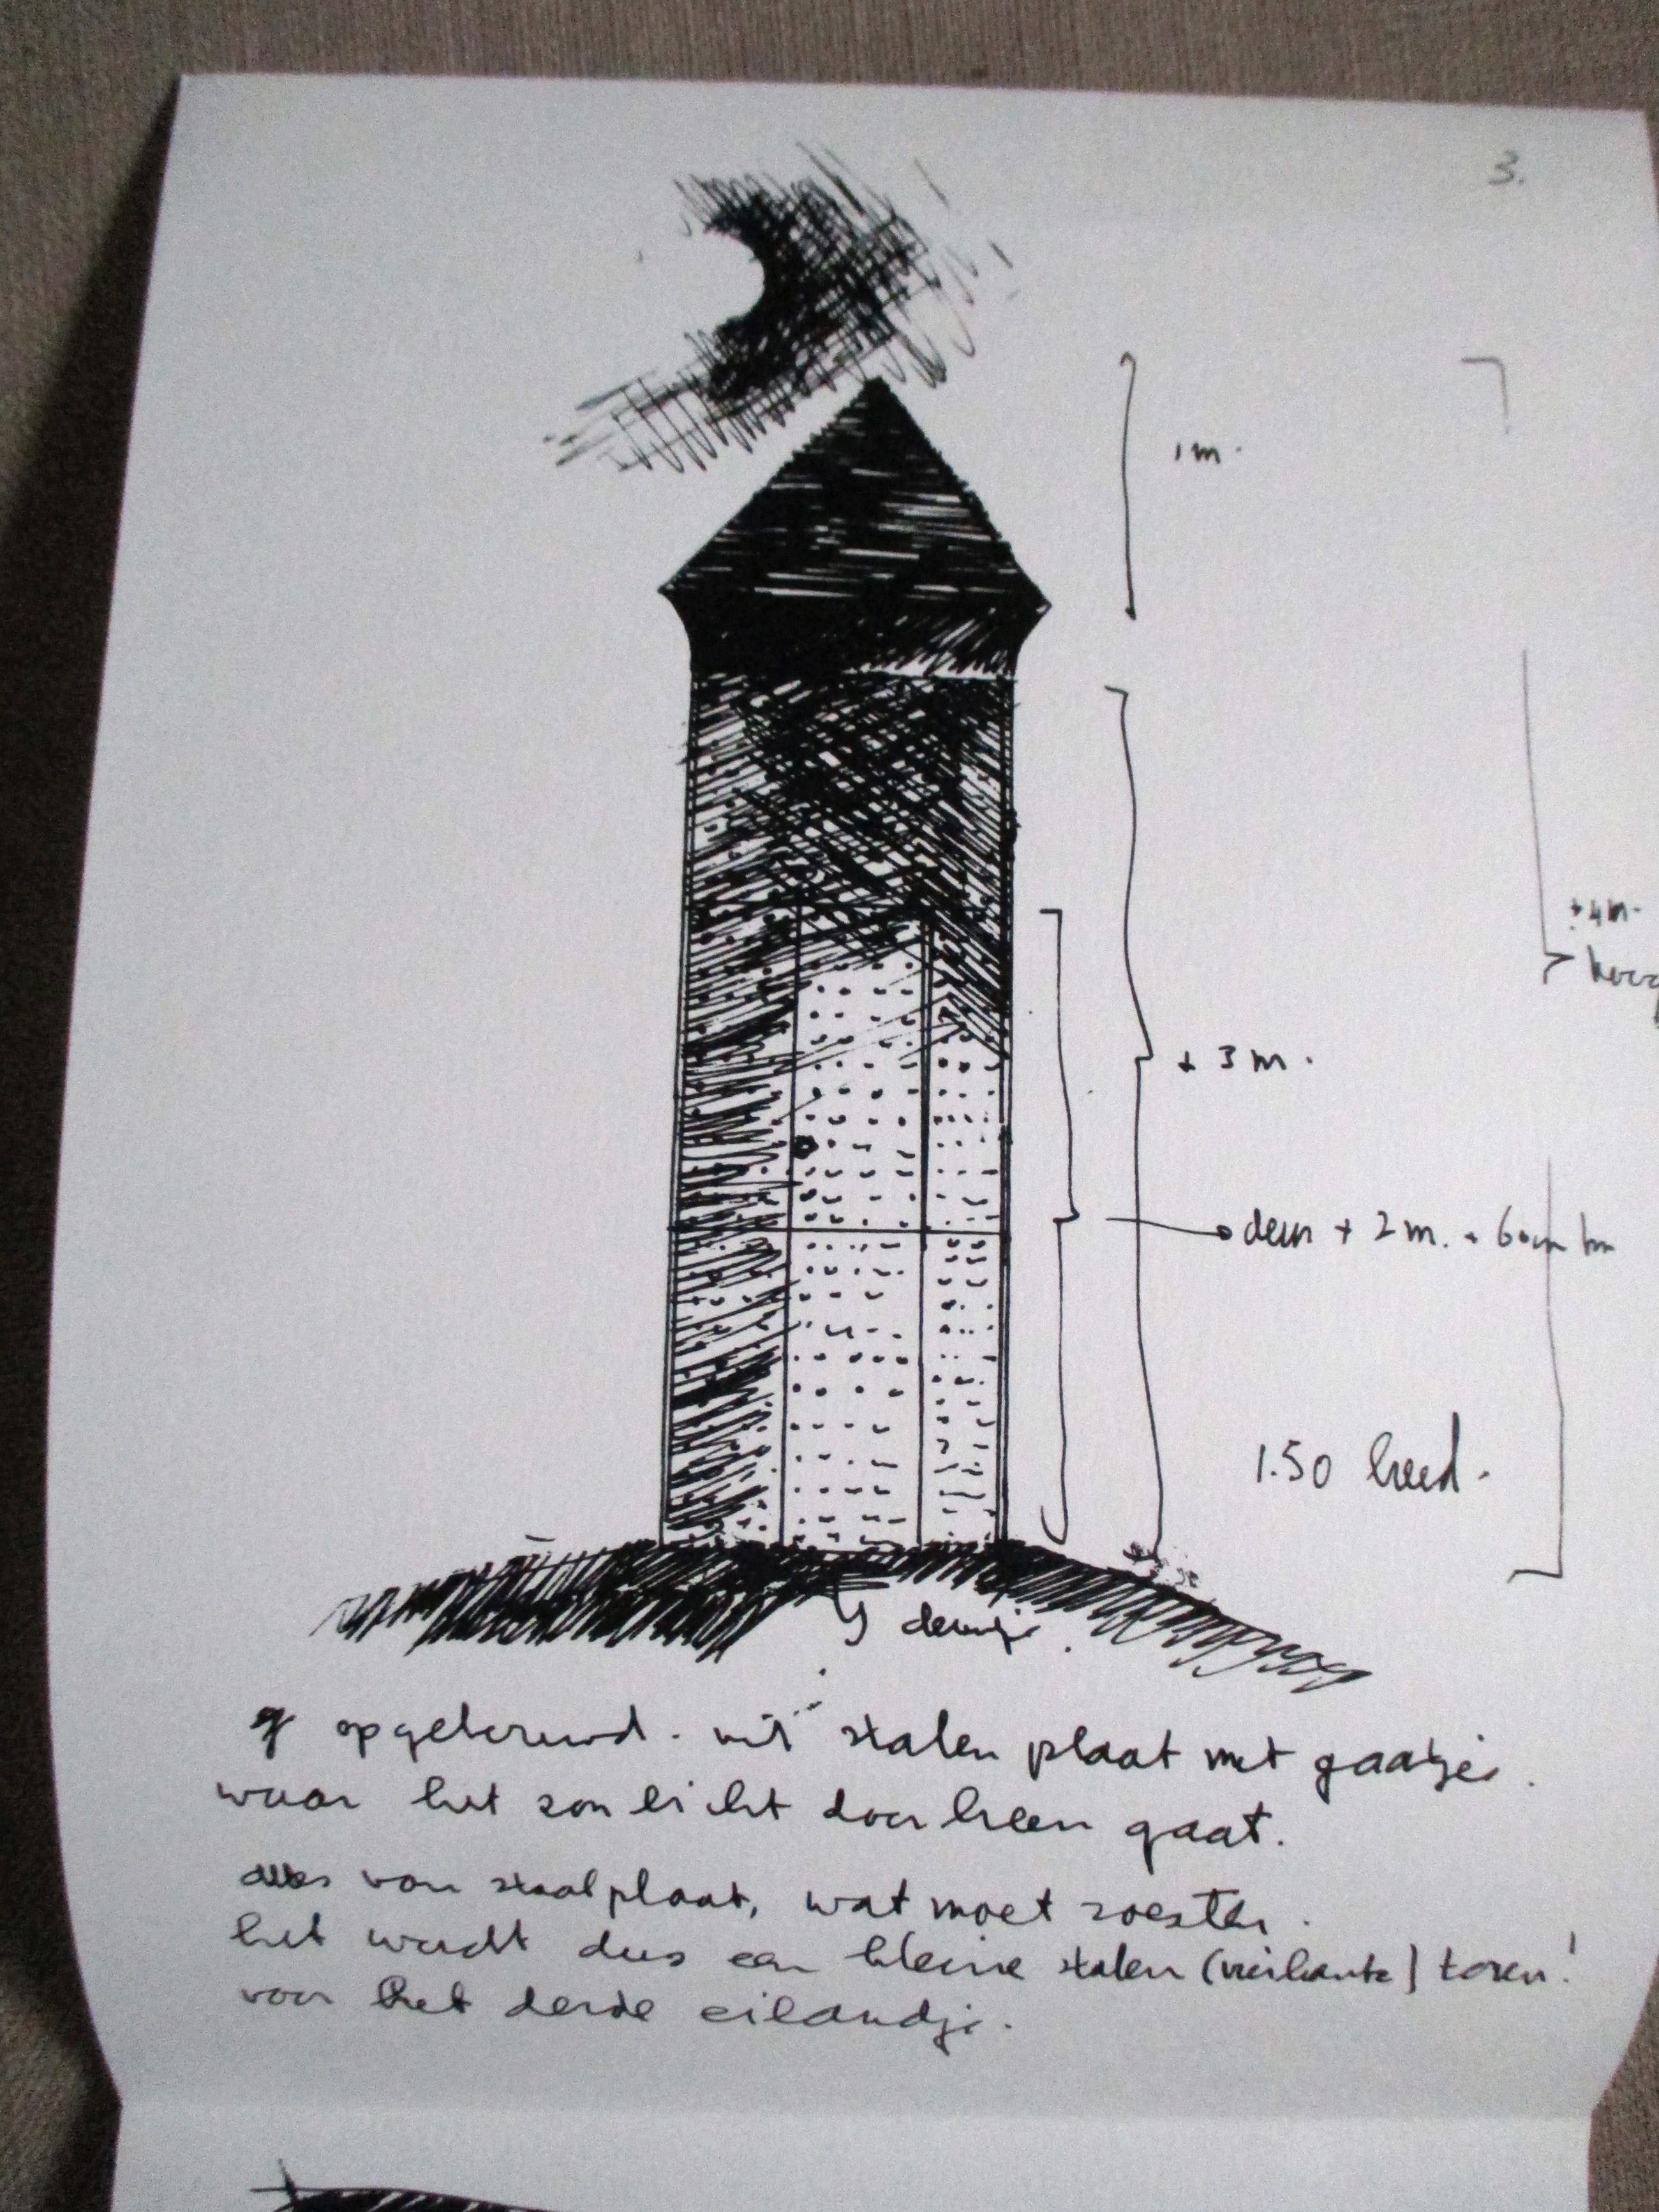 3.
1m.
± 4m.
hoog
± 3m.
deur ± 2m.
1.50 breed.
deurtje.
opgebouwd. uit stalen plaat met gaatjes.
waar het zonlicht door heen gaat.
alles van staalplaat, wat moet roesten.
het wordt dus een kleine stalen (vierkante) toren!
voor het derde eilandje.